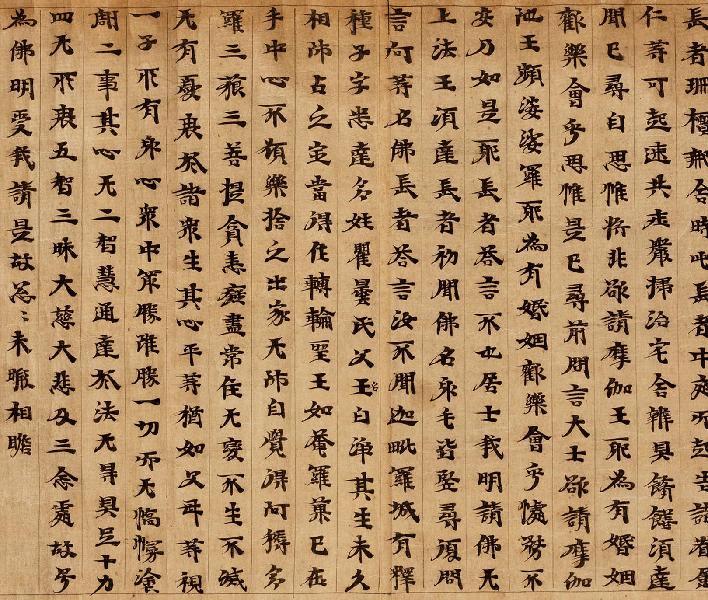 長者珊檀那舍時此長者中夜而起告諸眷屬
仁等可起速共庄嚴掃治宅舍辦具餚饍須達
聞已尋自思惟將非欲請摩伽王耶為有婚姻
歡樂會乎思惟是已尋前問言大士欲請摩伽
陁王頻婆娑羅耶為有婚姻歡樂會乎怱務不
安乃如是耶長者答言不也居士我明請佛无
上法王須達長者初聞佛名身毛皆竪尋復問
言何等名佛長者答言汝不聞迦毗羅城有釋
種子字悉達多姓瞿曇氏父王名白淨其生未久
相師占之定當得作轉輪聖王如菴羅菓已在
手中心不願樂捨之出家无師自覺得阿耨多
羅三藐三菩提貪恚癡盡常住无變不生不滅
无有憂畏於諸衆生其心平等猶如父母等視
一子所有身心衆中第勝雖勝一切而无憍慢塗
割二事其心无二智慧通達於法无㝵具足十力
四无所畏五智三昧大慈大悲及三念處故号
為佛明受我請是故怱怱未暇相瞻